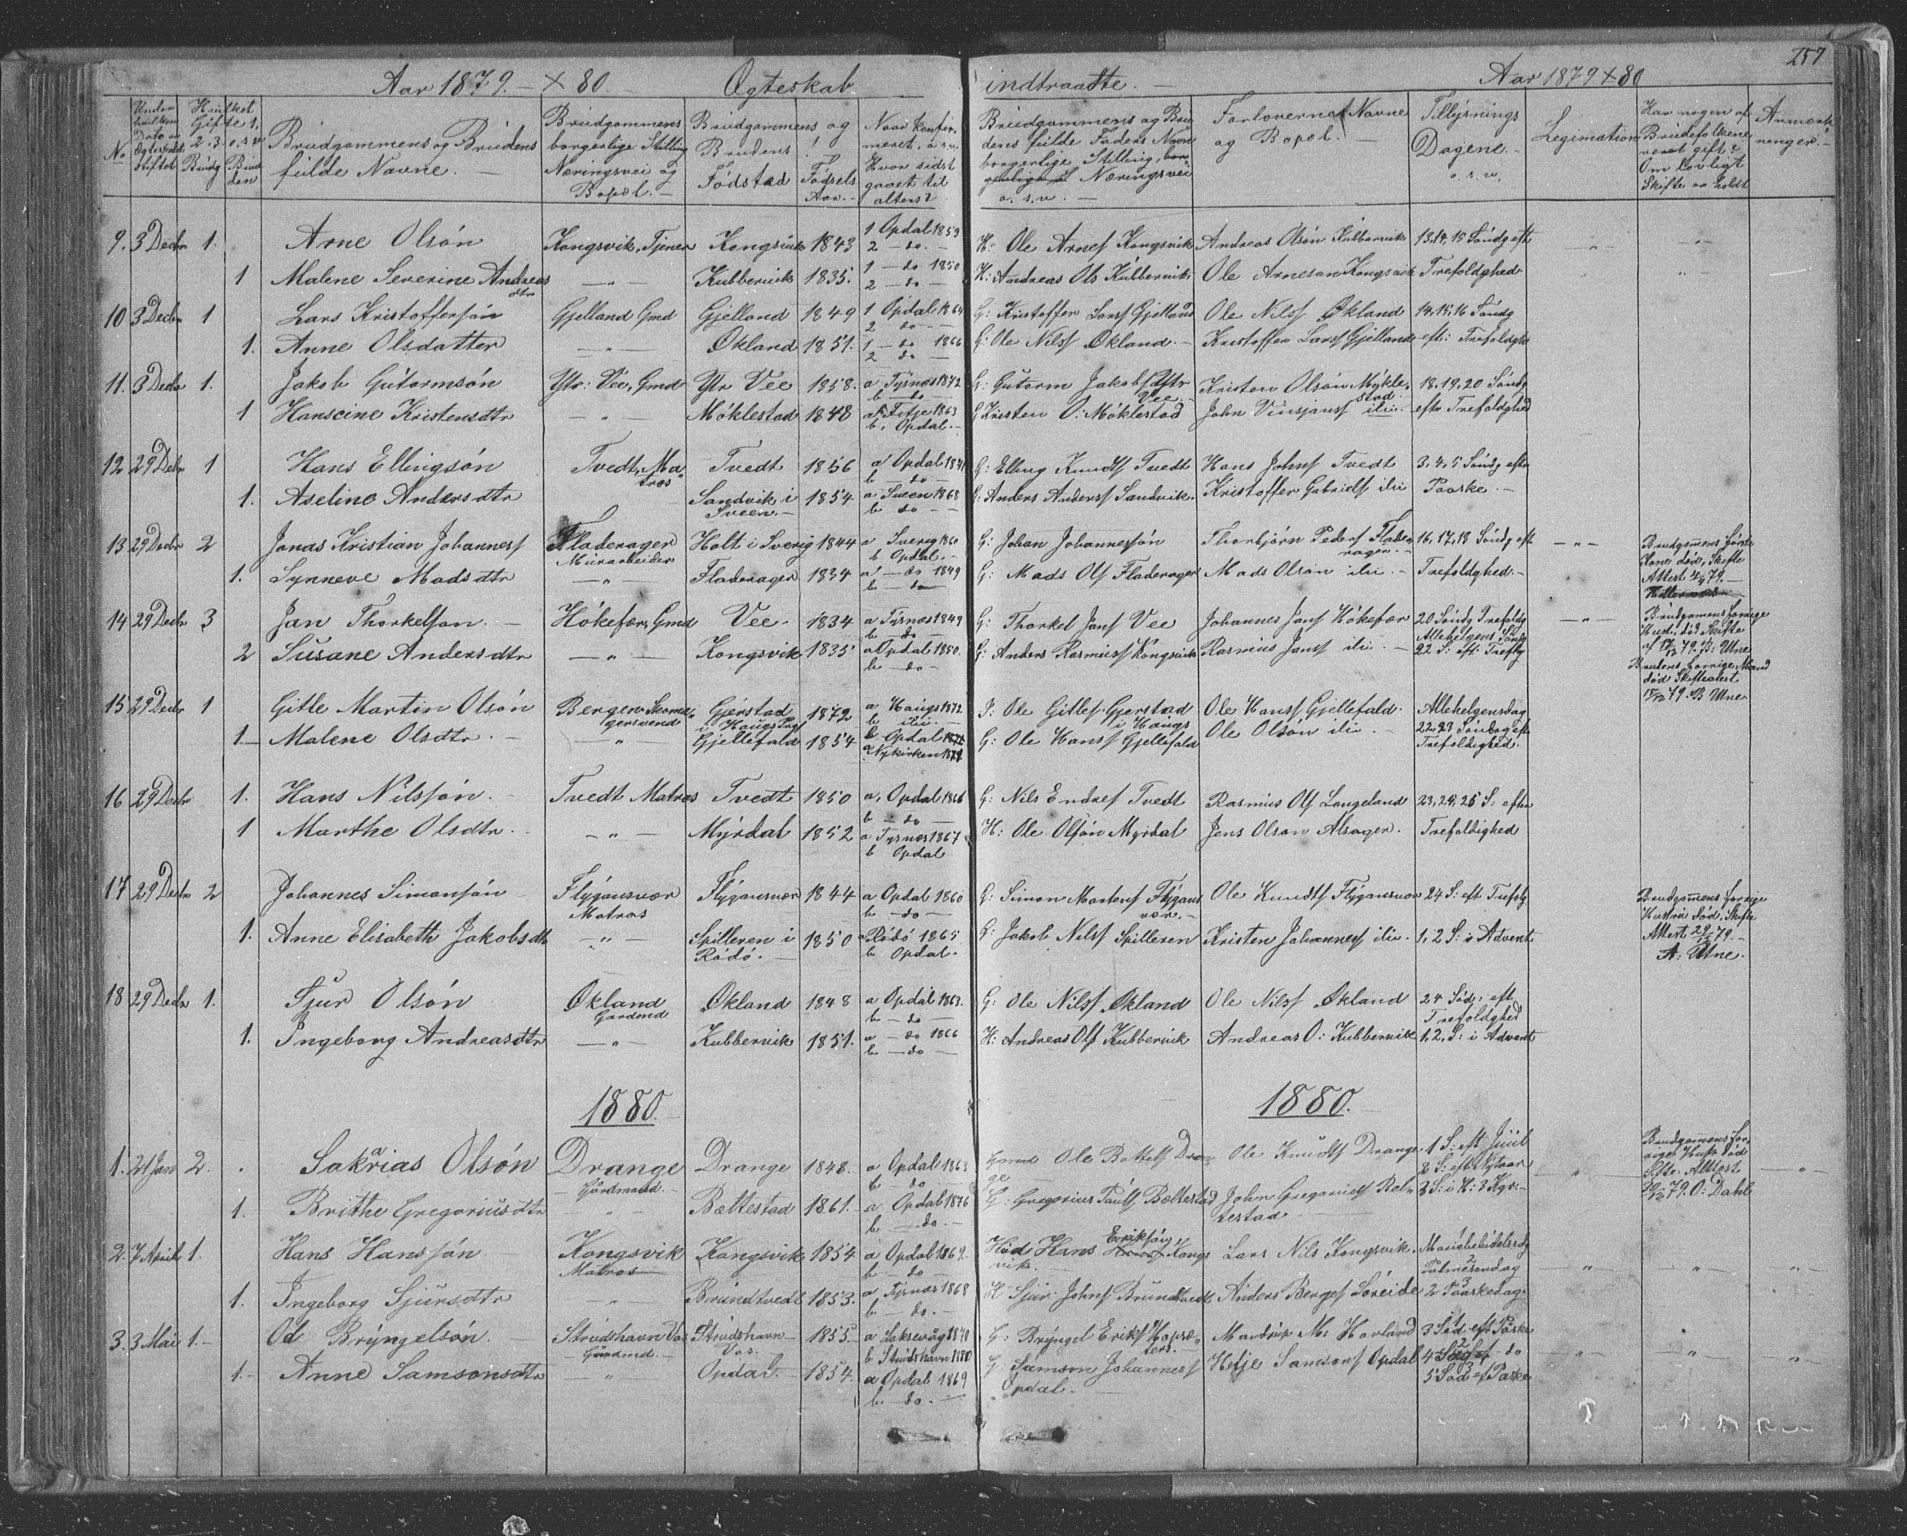 257
Aar 1879 - + 80. Ogteskab indtraadte. - Aar 1879 + 80
No.
Brudgommens og Brudens fulde Navne. -
Brudgommens borgerlige Stilling Næringsvei og Bopel. -
Brudgommens og Brudens Fødstad
Fødsels Aar. -
Naar konfirmeret, o.s.v. Hvor sidst gaaet til alters?
Brudgommens og Brudens fulde Faders Navn borgerlige Stilling, Næringsvei o.s.v. -
Forlovernes Navne og Bopel. -
Tillysnings Dagene. - o.s.v.
Legimation
Har nogen af Brudefolkene været gift? Om lovligt Skifte er holdt
Anmærkninger. -
9. 3 Decbr 1. Arne Olsøn Kongsvik, Tjener Kongsvik 1843 1 Opdal 1859 2 - do. - H: Ole Arnes Kongsvik Andreas Olsøn Kubbervik 13, 14, 15 Søndg eft
1 Malene Severine Andreas dtr - " - Kubbervik 1835. 1 - do 1850 2 - do - H: Andreas Ols Kubbervik Ole Arneson Kongsvik Trefoldghed
10 3 Decbr 1 Lars Kristoffersøn Gjelland Gmd Gjelland 1849 1 Opdal 1864 2 do - G: Kristoffer Larss Gjelland Ole Nilss Økland 14, 15, 16 Søndg
1. Anne Olsdatter - " - Økland 1851. 1 - do 1866 2 - do - G: Ole Nilss Økland. - Kristoffer Larss Gjelland eft: Trefoldghd
11. 3 Decbr 1. Jakob Gutormsøn Ytr: Vee, Gmd Ytr Vee 1858. a Tysnes 1872 b - do - G: Gutorm Jakobs Ytr Vee. - Kristen Olsøn Møklestad 18, 19, 20 Søndg
1 Hanseine Kristensdtr - " - Møklestad 1848 a Fitje 1863 b, Opdal. - G Kristen O: Møklestad John Vinsjanss ibi. - eftr Trefoldghed
12 29 Debr 1 Hans Ellingsøn Tvedt, Matros Tvedt 1856 a Opdal b - do - G: Elling Knuds Tvedt Hans Johns Tvedt 3, 4, 5 Søndg eftr
1. Aseline Andersdtr Sandvik i Sveen. - 1854 a Sveen 1868 b do - G: Anders Anderss Sandvik. Kristoffer Gabriels ibi Paaske. -
13 29 Decbr 2 Jonas Kristian Johanness Fladerager Murarbeider Holt i Sverig 1844 a Sverig 1860 b Opdal. - G: Johan Johannessøn Thorbjørn Peders Fladerager. - 16, 17, 18 Søndg eft - " - Brudgomens første Kone død, Skifte Attest 79. -
1. Synneve Madsdtr - " - Fladerager 1834 a - do 1849 b - do - G: Mads Ols Fladerager Mads Olsøn ibi. - Trefoldghed. -
14 29 Decbr 3 Jan Thorkelson. - Høkefær, Gmd Vee. 1834 a Tysnes 1849 b do G: Thorkel Jans Vee Johannes Jans Høkefær 20 Søndg Trefoldg Allehelgens Søndg - " - Brudgomens forrige Hust: død Skifte
2 Susane Andersdtr - " - Kongsvik 1835 a Opdal 1850. b - do - G: Anders Rasmuss Kongsvik Rasmus Janss ibi. - 22 S: eft: Trefg Brudens forrige Mand død Skifteatest 79. B Utne
15 29 Decbr 1 Gitle Martin Olsøn Bergen Skomagersvend Gjerstad i Haugs Prg 1872 a Haugs 1872 b ibi. - P: Ole Gitles Gjerstad i Haugs Ole Hanss Gjellefald. Allehelgensdag
1 - Malene Olsdtr. - - " - Gjellefald 1854 b Opdal a Nykirken G: Ole Hans Gjellefald Ole Olsøn ibi. - 22, 23 Søndag eft Trefoldighed.
16 29 Decbr 1. Hans Nilssøn. Tvedt Matros Tvedt 1850 a, Opdal 1866 b - do - G: Nils Endres Tvedt Rasmus Ols Langeland 23, 24, 25 S: eftr
1 Marthe Olsdtr. - " - Myrdal 1852 a Tysnes 1867 b Opdal H: Ole Olsøn Myrdal Jens Olson Alsager. Trefoldighed
17 29 Decbr 2 Johannes Simonsøn Flygansvær Matros Flygansvær 1844 a Opdal 1860 b - do - G: Simon Mortens Flygansvær. - Ole Knuds Flygansvær 24 S: eft Trefolg Brudgomens forrige Hustru død, Skifte Attest 79 - A: Utne.
1. Anne Elisabeth Jakobsdtr - " - Spilleren i Rødø. - 1850 a Rødø 1865 b Opdal. G: Jakob Nilss Spilleren Kristen Johanness ibi. 1, 2 S: i Advent
18 29 Decbr 1. Sjur Olsøn Økland Gardmd Økland 1848 a Opdal 1863. b - do - G: Ole Nilss Økland Ole Nilss Økland 24 Sød: eft Trefoldghed
1. Ingeborg Andreasdtr - " - Kubbervik 1851. a - do 1866 b - do - H: Andreas Ols Kubbervik Andreas O: Kubbervik 1, 2, S: i Advent
1880. 1880.
1. 21 Jan 2. Sakrias Olsøn Drange Gardmand. - Drange 1848. a Opdal 1863 b - do Gmd Ole Bottels Drange Ole Knudss Drange. 1 S: eft Juul 2 S: eft Nytaar - " - Brudgomens forrige Hust død Skfte Attest 79. O: Dahl - " -
1. Brithe Gregoriusdtr - " - Bæltestad 1861. a Opdal 1876 b - do - G: Gregorius Pauls Bæltestad John Gregorius Bæltestad 3 S: i H: 3 Kgr. -
2. 7 April 1. Hans Hanssøn Kongsvik Matros Kongsvik 1854 a Opdal 1869. b - do - Hd Hans Erikssøns Kongsvik. Lars Nils Kongsvik. Mariebebudelsedg Palmesøndag - " - " - " -
1. Ingeborg Sjursdtr - " - Brundtvedt 1853. a Tysnes 1868 b - do. - H Sjur Johns Brundtvedt Anders Berges Søreide 2 Paaskedag.
3. 3 Mai 1. - Od Bryngelsøn. - Strudshavn Vos Gardmd. - Strudshavn Vos. 1855. a Saksevåg 1870 b Strudshavn 1880 G: Bryngel Eriks Mardrup M: Hovland 3 Sød eft Paske - " - " - " -
1. - Anne Samsonsdtr - " - Opdal. - 1854. a Opdal 1869 b - do. - G: Samson Johanness Opdal. - Helje Samsons Opdal 4 Sødg - do 5 Sød ef Paske